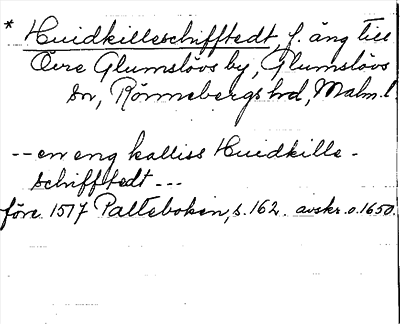 * Huidkilleschifftedt, f. äng till
Övre Glumslövs by, Glumslövs
sn, Rönnebergs hd, Malm. l.
-- en eng kalliss Huidkille-
schifftedt ---
före 1517 Palteboken, s. 162. avskr. o. 1650.